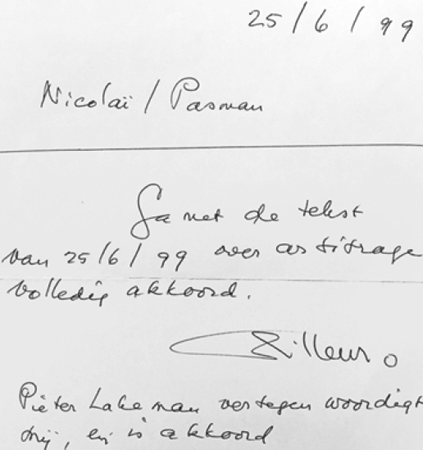 25/6/99
Nicolaï / Pasman
Ga met de tekst
van 25/6/99 over arbitrage
volledig akkoord.
Pieter Lakeman vertegenwoordigt
mij, en is akkoord